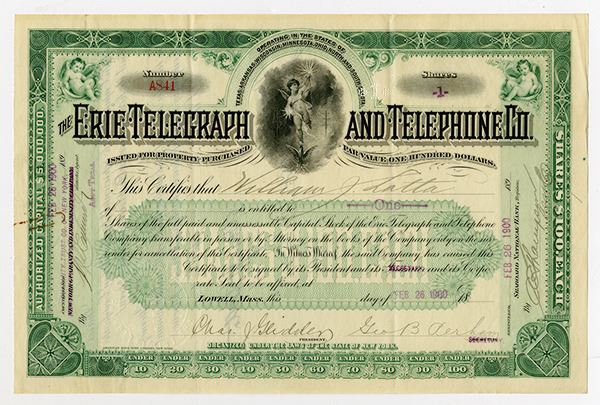 OPERATING IN THE STATES OF
TEXAS, ARKANSAS, WISCONSIN, MINNESOTA, OHIO, NORTH AND SOUTH DAKOTA.
Number
A841
Shares
-1-
THE ERIE TELEGRAPH AND TELEPHONE CO.
ISSUED FOR PROPERTY PURCHASED
PAR VALUE ONE HUNDRED DOLLARS.
This Certifies that William J. Latta
is entitled to One
Shares of the full paid and unassessable Capital Stock of the Erie Telegraph and Telephone
Company transferable in person or by Attorney on the books of the Company only on the sur-
render for cancellation of this Certificate. In Witness Whereof, the said Company has caused this
Certificate to be signed by its President and its and its Corpo-
rate Seal to be affixed, at
LOWELL, Mass. this day of FEB 26 1900 18
Chas. J. Glidden Geo. B.
ORGANIZED UNDER THE LAWS OF THE STATE OF NEW YORK.
UNDER 10 UNDER 20 UNDER 30 UNDER 40 UNDER 50 UNDER 60 UNDER 70 UNDER 80 UNDER 90 UNDER 100
AUTHORIZED CAPITAL $5,000,000.
FEB 26 1900
189
NEW YORK
By
SHARES $100. EACH
189
FEB 26 1900
NATIONAL BANK,
By